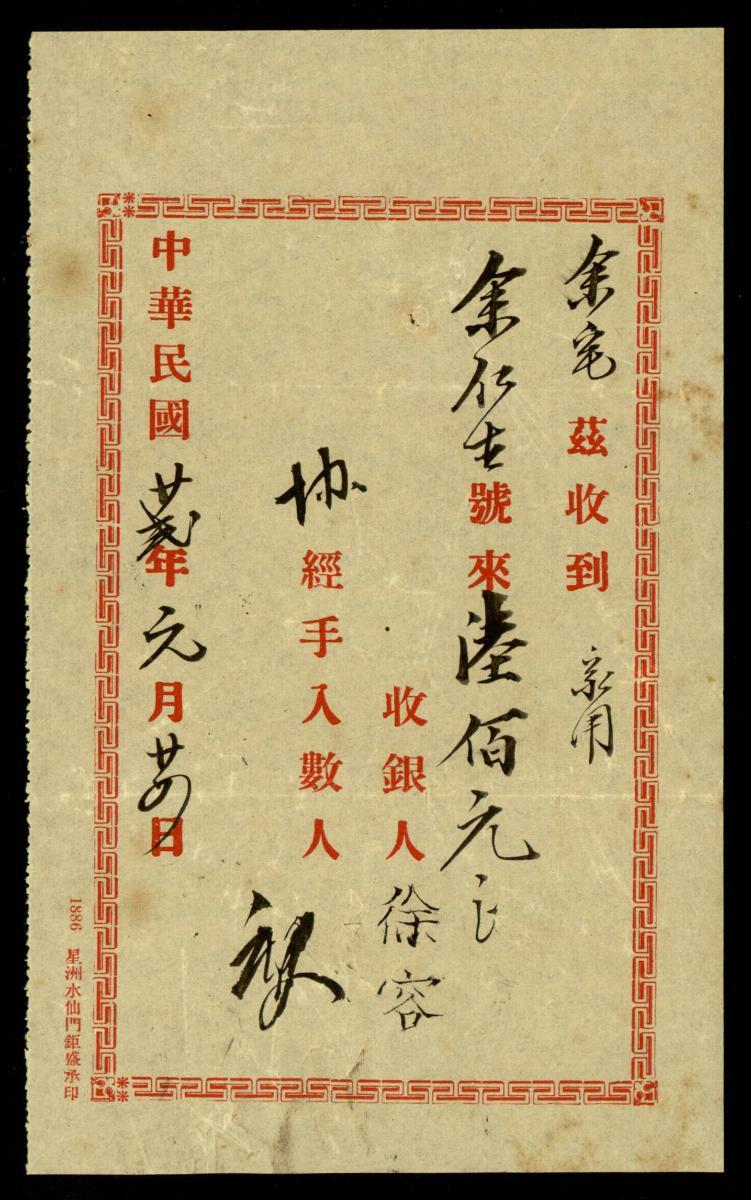 余宅茲收到家用
余仁生號來陸佰元正
收銀人徐容
協經手入數人
中華民國廿弍年元月廿四日
1886 星洲水仙門鉅盛承印